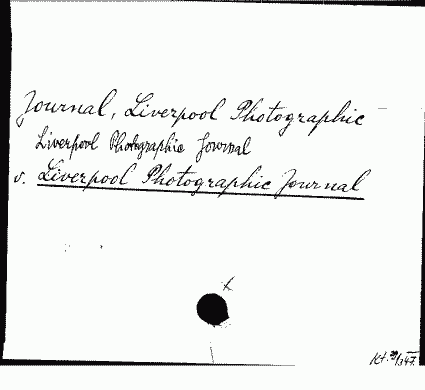 Journal, Liverpool Photographic
Liverpool Photographic Journal
v. Liverpool Photographic Journal
x